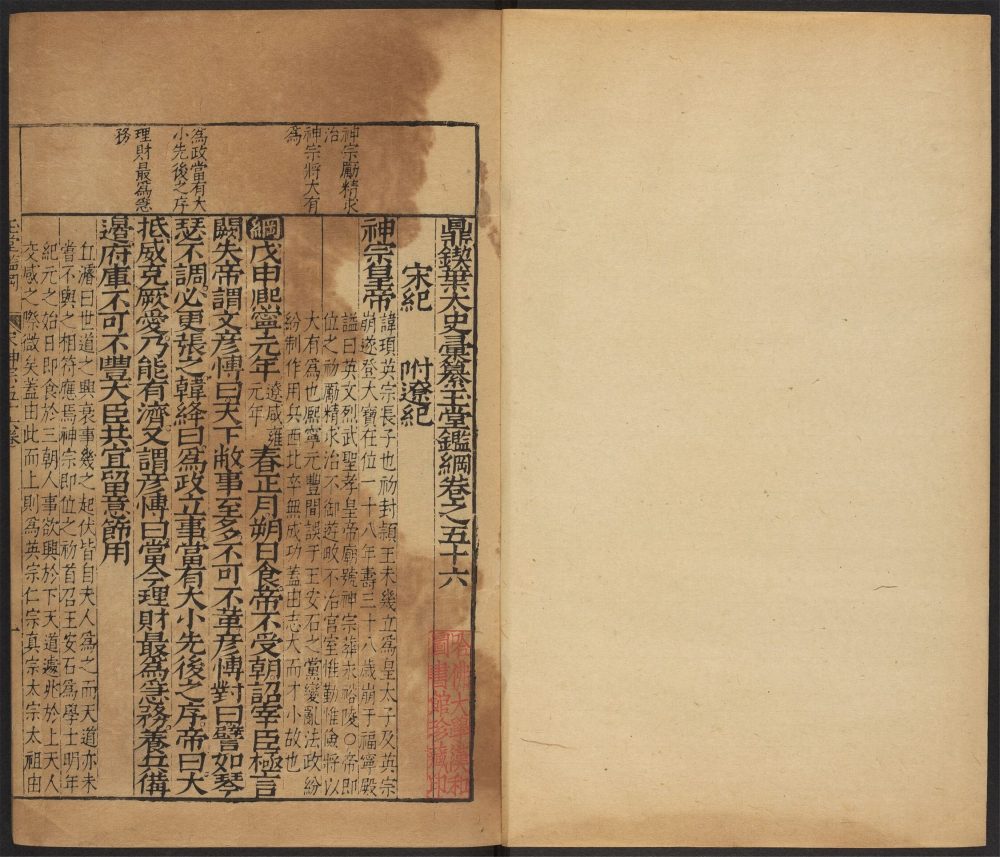 鼎鍥葉太史彙纂玉堂鑑綱卷之五十六
宋紀　附遼紀
神宗皇帝
諱頊英宗長子也初封頴王未幾立爲皇太子及英宗
崩遂登大寶在位一十八年壽三十八歲崩于福寧殿
謚曰英文烈武聖孝皇帝廟號神宗葬永裕陵〇帝即
位之初勵精求治不御遊畋不治宮室惟勤惟儉將以
大有爲也熈寧元豐間誤于王安石之黨變亂法政紛
紛制作用兵西北卒無成功蓋由志大而才小故也
綱戊申熈寧元年
遼咸雍
元年
春正月朔日食帝不受朝詔宰臣極言
闕失帝謂文彦愽曰天下敝事至多不可不革彦愽對曰譬如琴
瑟不調必更張之韓絳曰爲政立事當有大小先後之序帝曰大
抵威克厥愛乃能有濟又謂彦愽曰當今理財最爲急務養兵備
邊府庫不可不豐大臣共宜留意節用
丘濬曰世道之興衰事幾之起伏皆自夫人爲之而天道亦未
嘗不與之相符應焉神宗即位之初首召王安石爲學士明年
紀元之始日即食於三朝人事欲興於下天道遽兆於上天人
交感之際微矣蓋由此而上則爲英宗仁宗真宗太宗太祖由
神宗勵精求
治
神宗將大有
爲
爲政當有大
小先後之序
理財最爲急
務
哈佛大學漢和
圖書館珍藏印